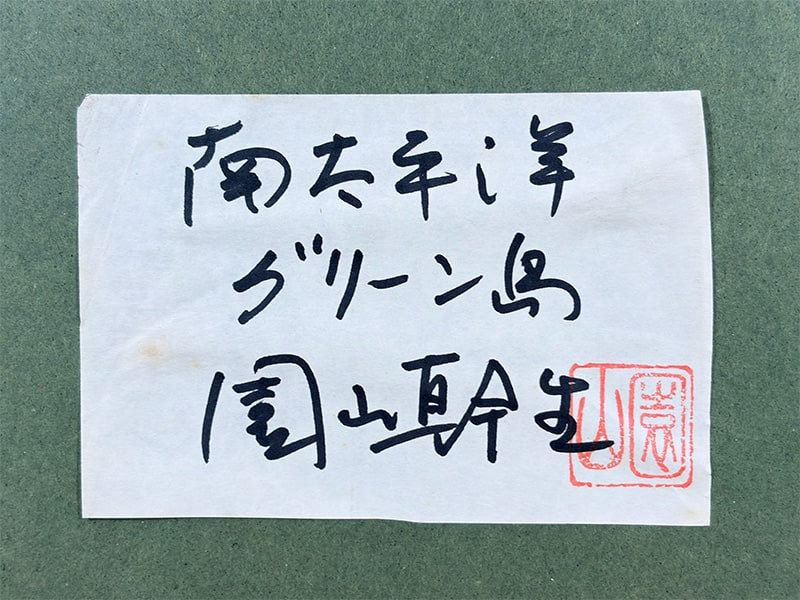 南太平洋
グリーン島
園山幹生
園山